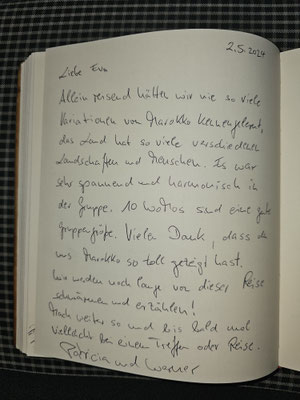 2.5.2024
Liebe Eva
Allein reisend hätten wir nie so viele
Variationen von Marokko kennengelernt,
das Land hat so viele verschiedene
Landschaften und Menschen. Es war
sehr spannend und harmonisch in
der Gruppe. 10 sind eine gute
Gruppengröße. Vielen Dank, dass du
uns Marokko so toll gezeigt hast.
Wir werden noch lange von dieser Reise
schwärmen und erzählen!
Mach weiter so und bis bald und
vielleicht bei einem Treffen oder Reise.
Patricia und Werner